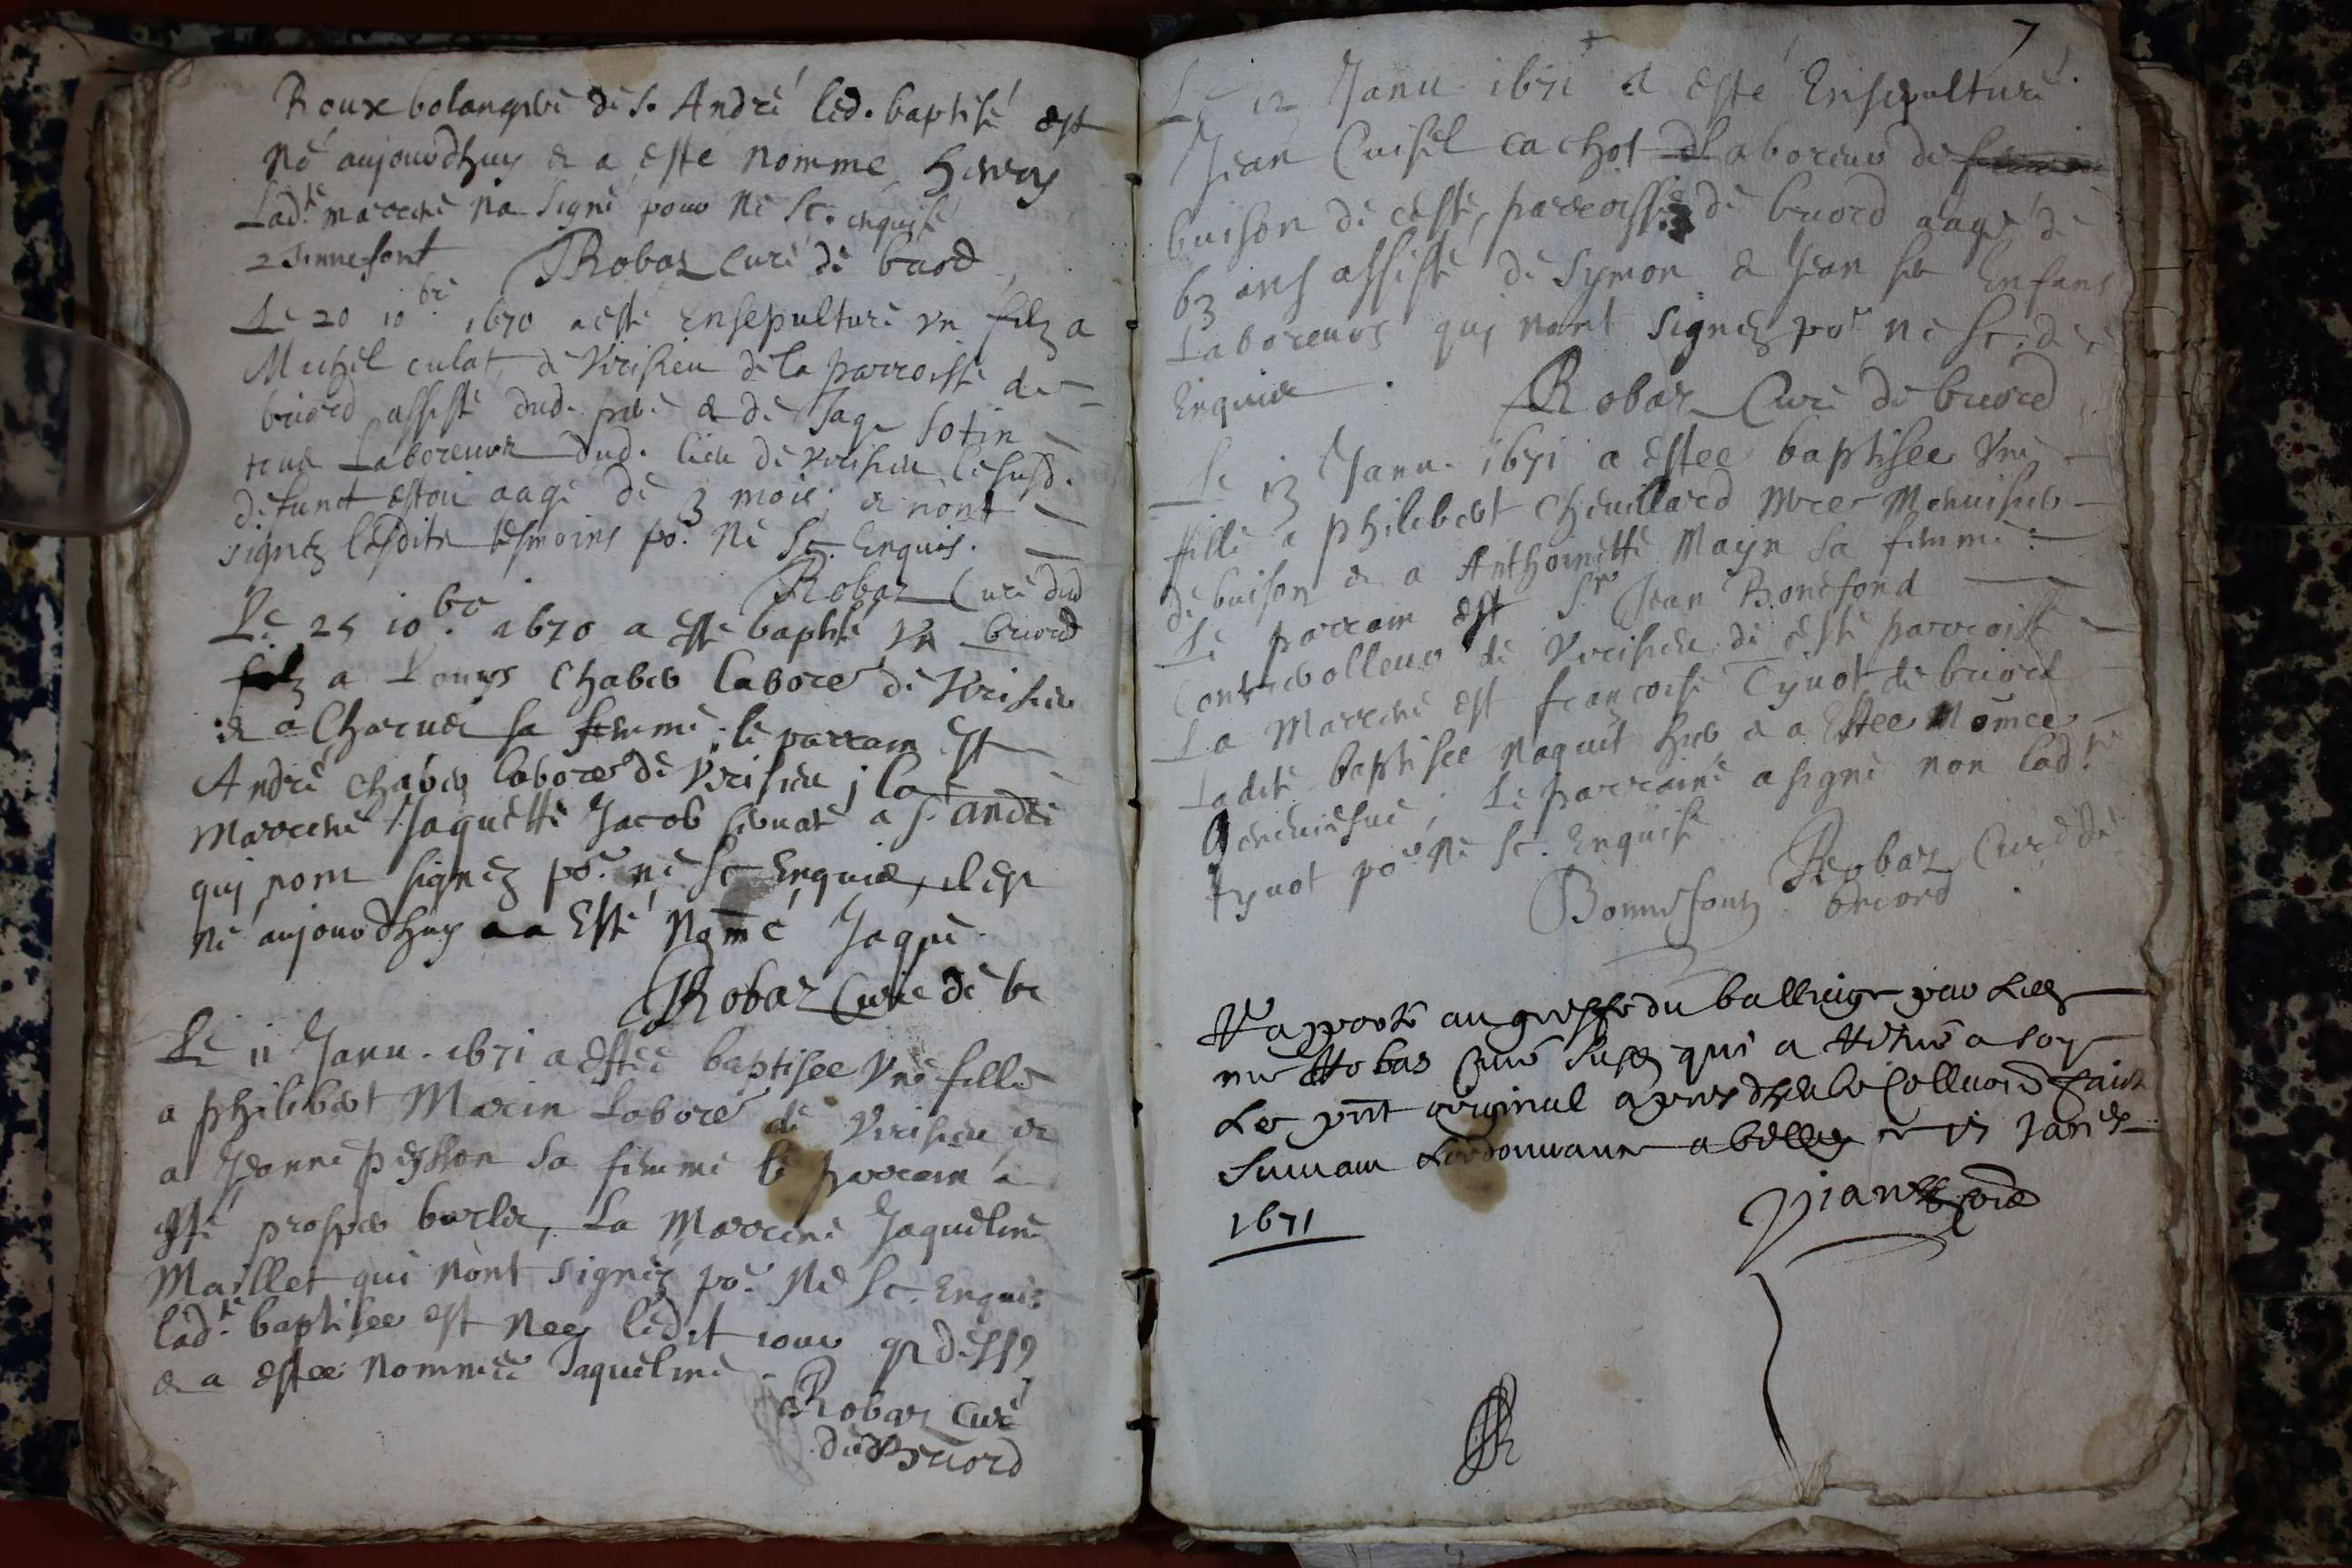 Roux bolangere de S. André led. baptisé est
né aujourdhuy & a este nomme henry
Ladte marrene na signé pour ne sc. enquise
Robaz curé de briord
Le 20 10bre 1670 a esté Ensepulturé vn filz a
Michel culat de Virisieu de la parroisse de
briord assisté dud. pere & de Jaqe Sotin
tous Laboreurs dud. lieu de virisieu le susd.
defunct estoit aagé de 3 mois & nont
signez lesdits tesmoins po.r ne sc. Enquis.
Robaz Curé dud
briord
Le 25 10bre 1670 a esté baptisé vn
filz a Louys Chaber labore.r de Virisieu
& a Charue sa femme. le parrain est
André chaber labore.r de Virisieu ; la
Marrene Jaquette Jacob a S. André
qui nont signez po.r ne sc. Enquis, il est
né aujourdhuy & a Esté Nommé Jaque
Robaz Curé de br
Le 11 Janu. 1671 a estée baptisee vne fille
a philibert Marin Labore.r de Virisieu &
a Jeanne pesson sa femme le parrain a
esté prosper burlet, La Marrene Jaqueline
Maillet qui nont signez po.r ne sc. Enquis
ladte baptisee est nee ledit iour que dessus
& a estee nommée Jaqueline.
Robaz Curé
de Briord
7
Le 12 Janu 1671 a esté Ensepulturé
Jean Cuisel cachot laboreur de
buison de ceste parroisse de briord aagé de
63 ans assisté de Symon & Jean ses Enfans
Laboreurs qui nont signez po.r ne sc. de ce
Enquis. Robaz Curé de briord
Le 13 Janu. 1671 a estee baptisee vne
fille a philibert Cheuillard Menuisier
de buison & a Anthoinette Mayn sa femme.
Le parrain est Sr Jean Bonefond
Controolleur de Virisieu de ceste parroisse
La Marrene est francoise Tynot de briord
Ladite baptisee naquit hier & a Estee Nomee
Geneuiefue, Le parraine a signé non ladte
tynot po.r ne sc. Enquise
Robaz Curé de
Bonnefont briord
Rapporté au greffe du balliage par
mre Robas curé susd qui a Retiré a soy
Le pnt original apres collaõn faict
Suiuant Lordonnance a belley ce 15 Janer
1671